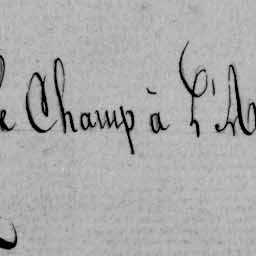 Champ à L'A